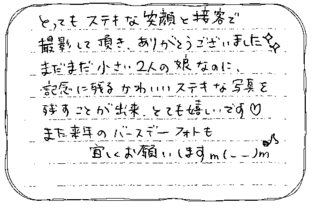 とってもステキな笑顔と接客で
撮影して頂き、ありがとうございました✨
まだまだ小さい2人の娘なのに、
記念に残るかわいいステキな写真を
残すことが出来、とても嬉しいです♡
また来年のバースデーフォトも
宜しくお願いします m(_ _)m♪